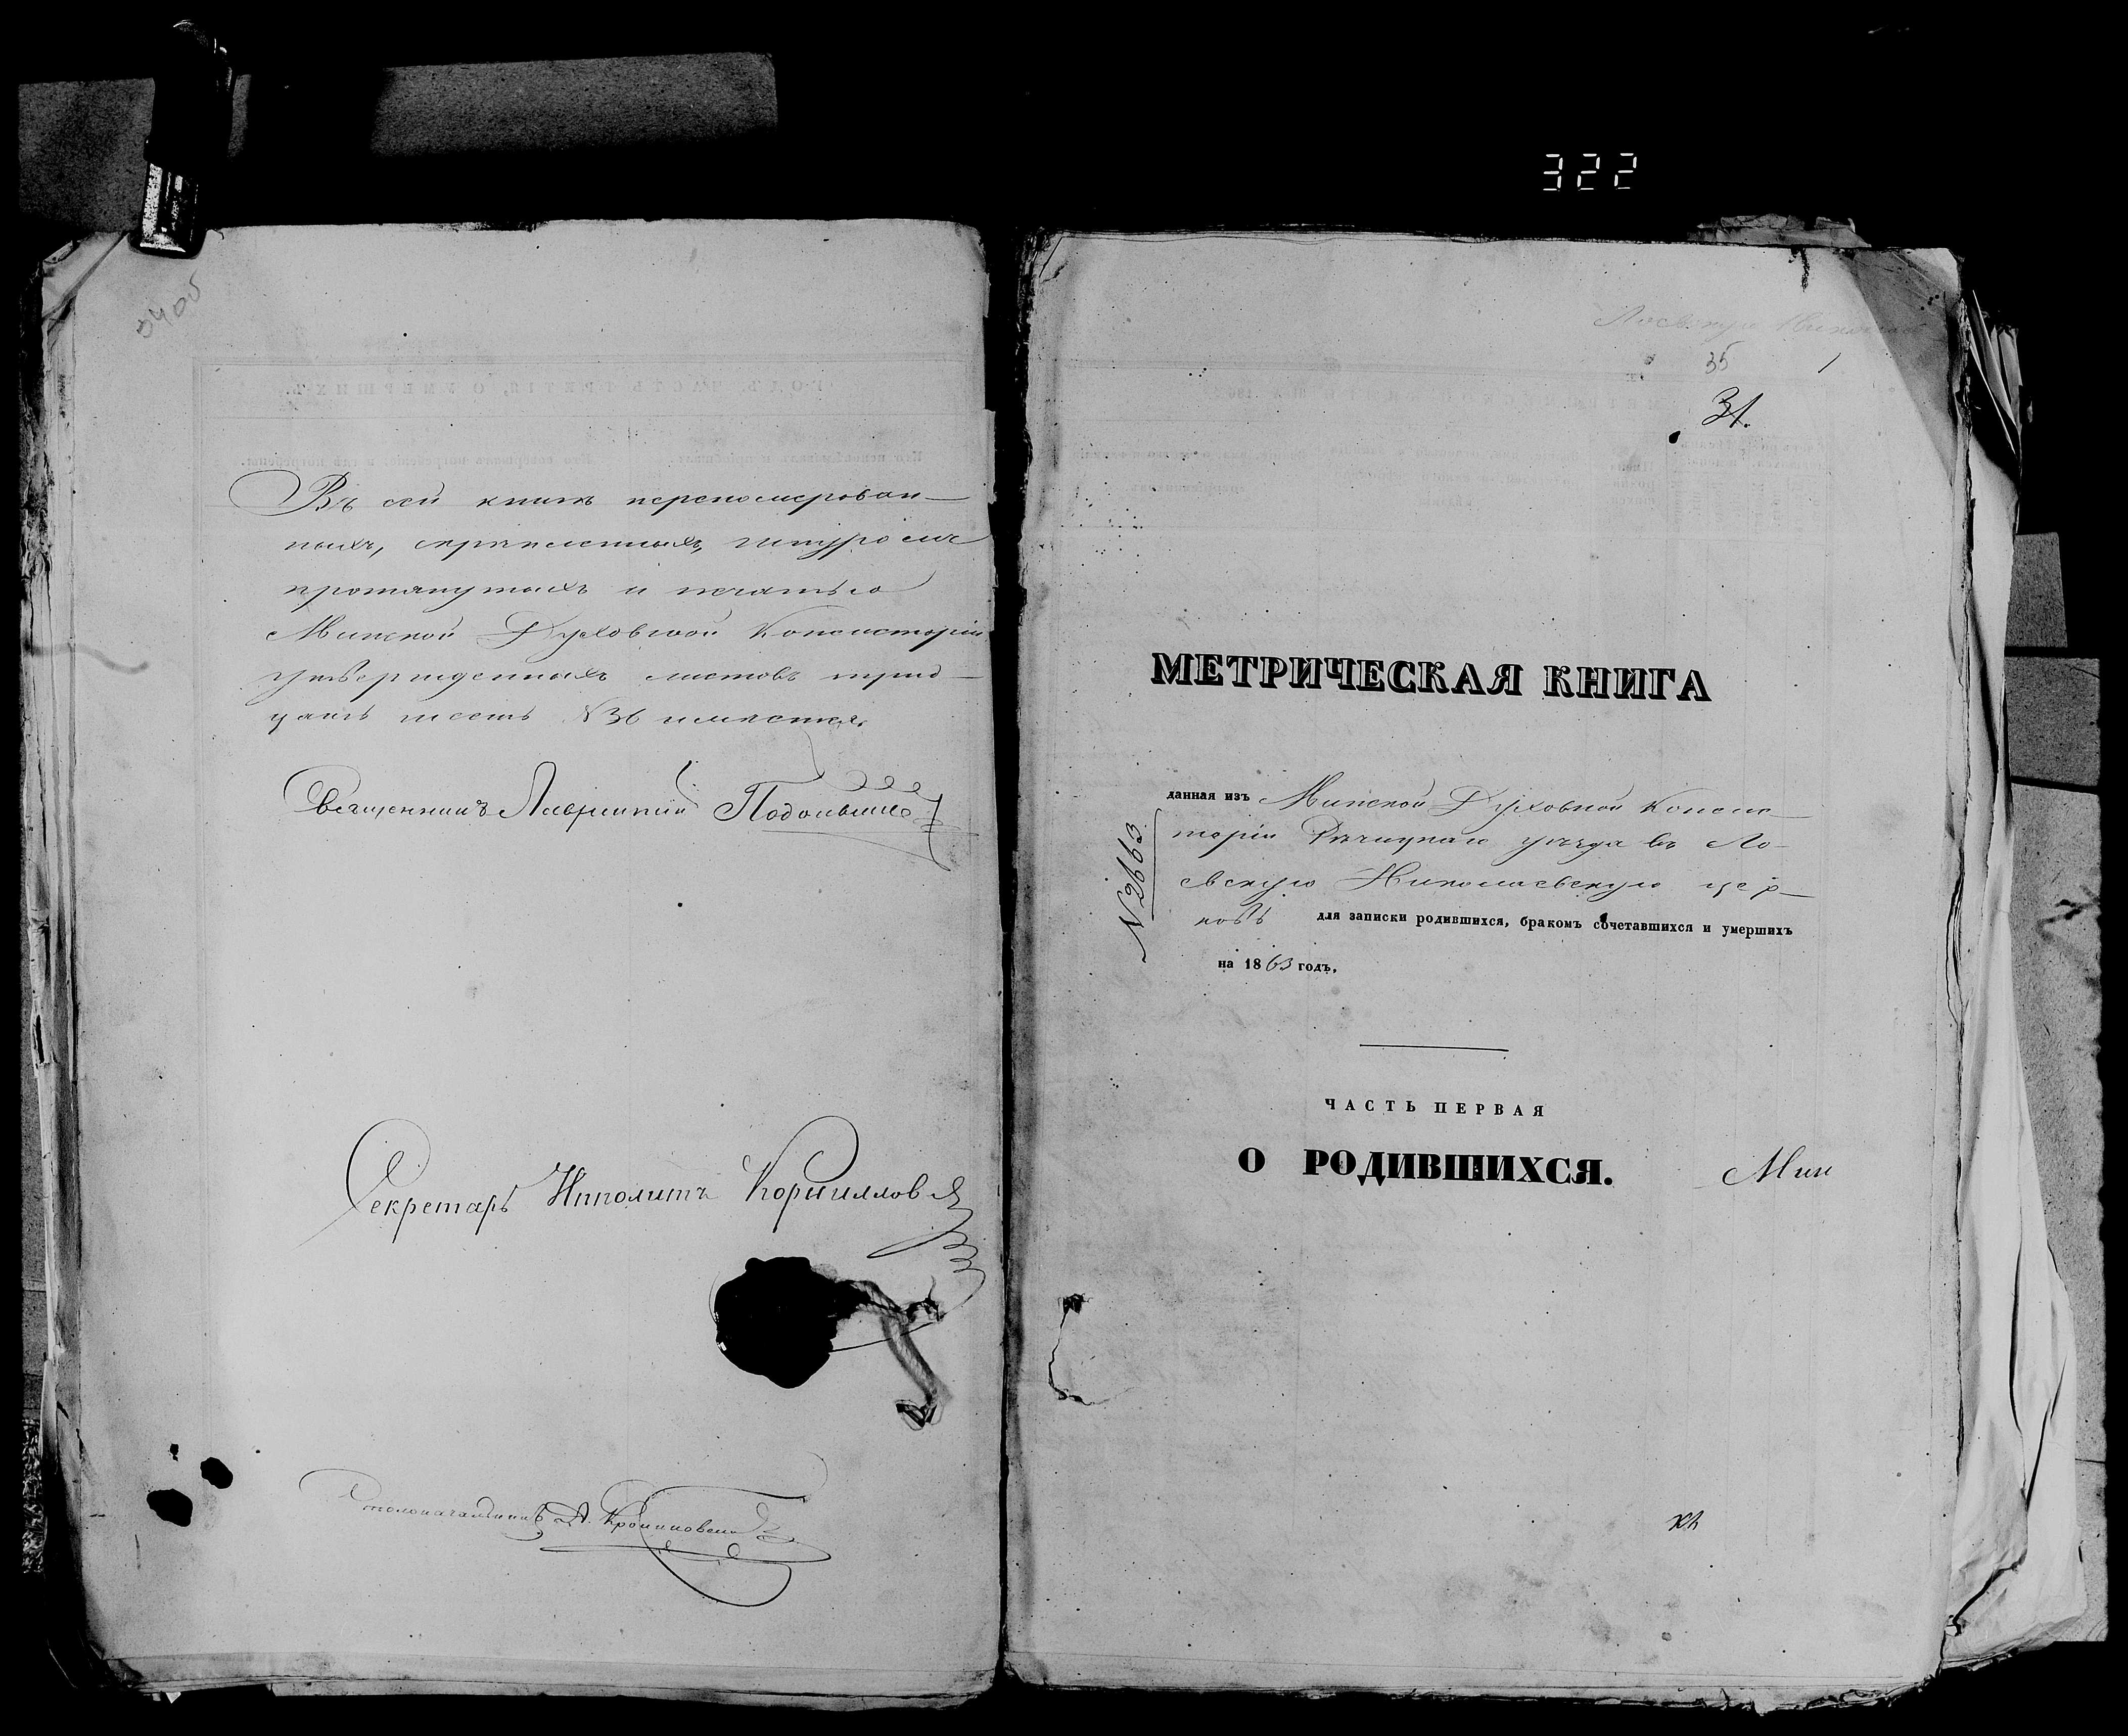 322
Въ сей книгѣ переномерован-
ныхъ, скрѣпленныхъ, шнуромъ
протянутыхъ и печатью
Минской Духовной Консисторіи
утвержденныхъ листовъ трид-
цать шесть №36 имѣется.
Священникъ Лаврентій
Секретарь Ипполитъ Корниловъ
Столоначальникъ А.
35
1
31.
МЕТРИЧЕСКАЯ КНИГА
данная изъ Минской Духовной Консис-
торіи Рѣчицкаго уѣзда въ Ло-
евскую Николаевскую цер-
ковь для записки родившихся, бракомъ сочетавшихся и умершихъ
на 1863 годъ.
N2663
ЧАСТЬ ПЕРВАЯ
О РОДИВШИХСЯ.
Мин